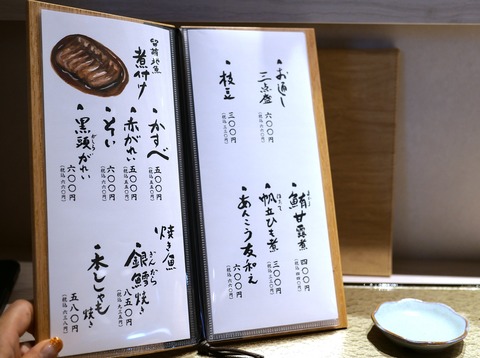 お通し
三点盛
六〇〇円
(税込 六六〇円)
枝豆
三〇〇円
(税込 三三〇円)
鮪甘露煮
まぐろ
四〇〇円
(税込 四四〇円)
帆立ひも煮
ほたて
三〇〇円
(税込 三三〇円)
あんこう友和え
六〇〇円
(税込 六六〇円)
留萌地魚
煮付け
かすべ
五〇〇円
(税込 五五〇円)
赤がれい
五〇〇円
(税込 五五〇円)
そい
六〇〇円
(税込 六六〇円)
黒頭がれい
がしら
六〇〇円
(税込 六六〇円)
焼き魚
銀鱈焼き
ぎんだら
八五〇円
(税込 九三五円)
本ししゃも焼き
五八〇円
(税込 六三八円)